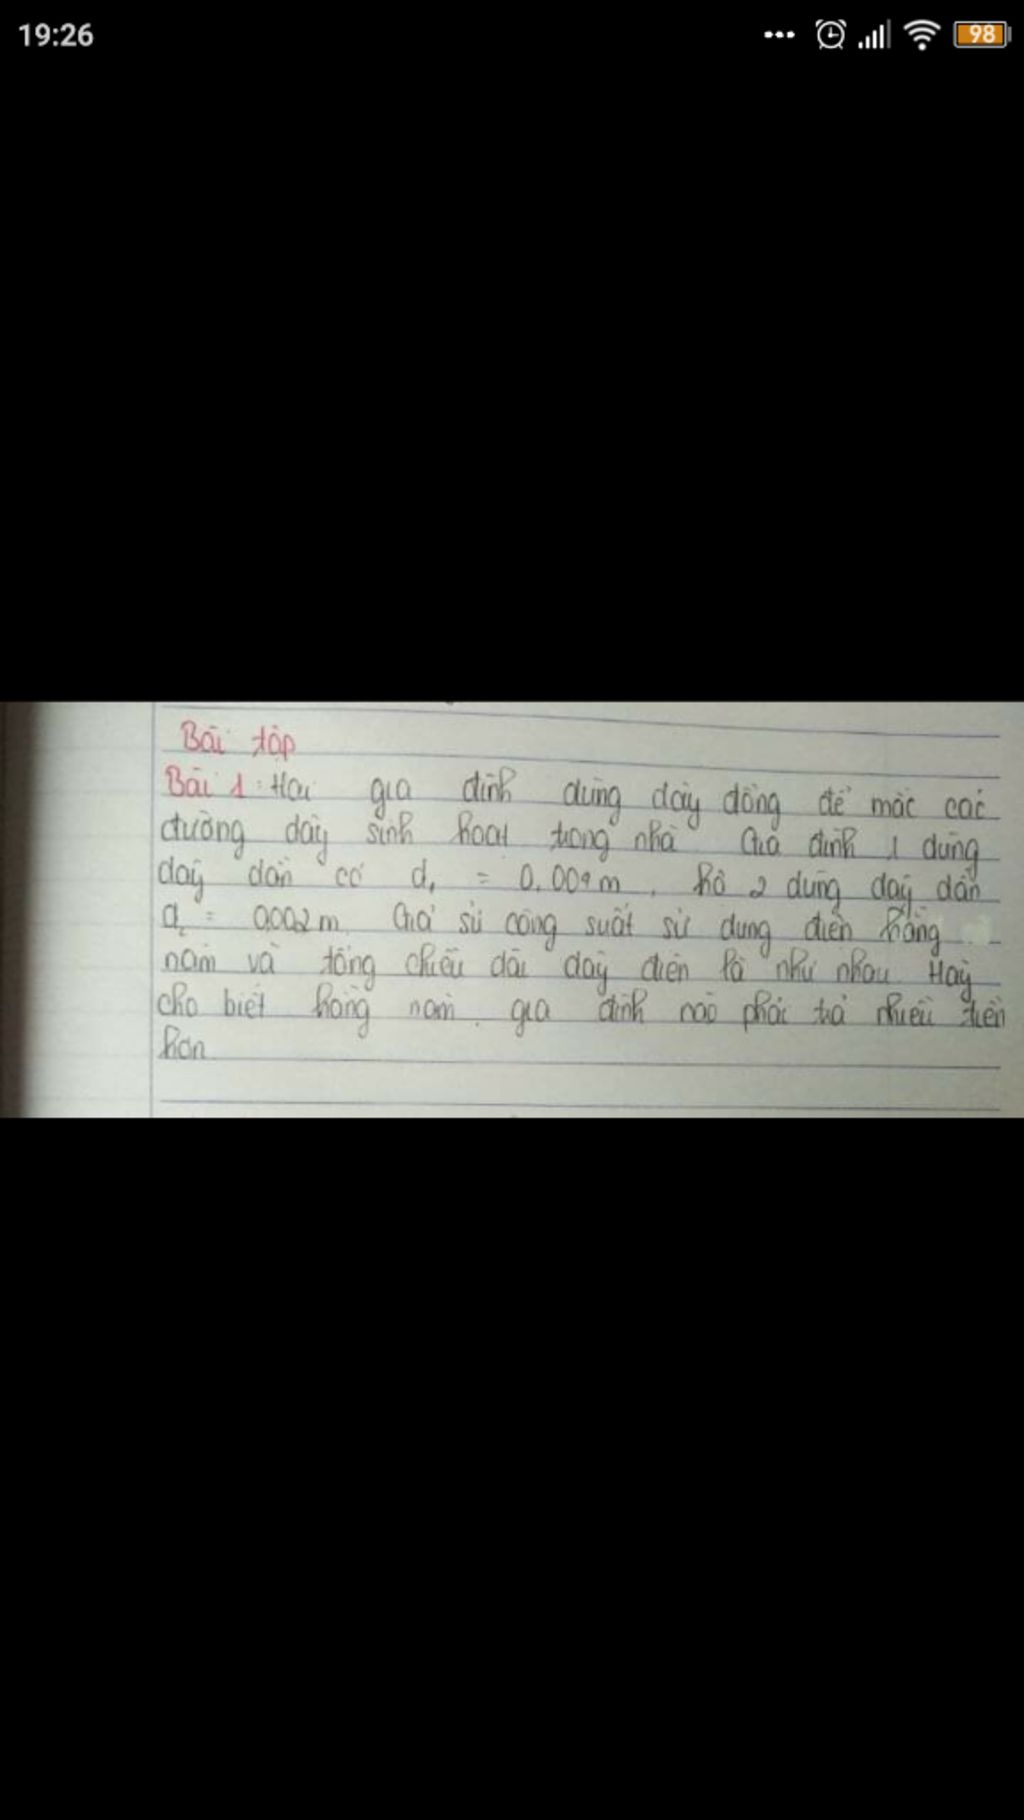 19:26
98
Bài tập
Bài 1: Hai gia đình dùng dây đồng để mắc các
đường dây sinh hoạt trong nhà Gia đình 1 dùng
dây dẫn có d₁ = 0.004m, hộ 2 dùng dây dẫn
d₂ = 0,002m. Giả sử công suất sử dụng điện hằng
năm và tổng chiều dài dây điện là như nhau Hãy
cho biết hằng năm, gia đình nào phải trả nhiều tiền
hơn